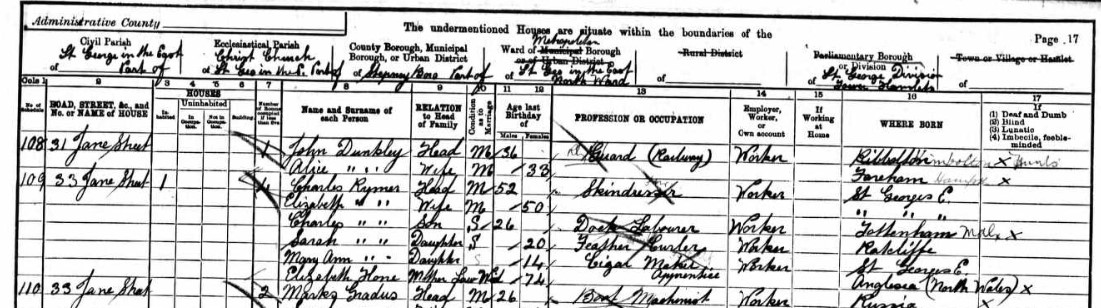 Administrative County
The undermentioned Houses are situate within the boundaries of the
Page 17
Civil Parish
of St George in the East Part of
Ecclesiastical Parish
Christ Church
of St Geo in the E. Part of
County Borough, Municipal
Borough, or Urban District
of Stepney Boro Part of
Metropolitan
Ward of Municipal Borough
or of Urban District
of St Geo in the East
North Ward
Rural District
of
Parliamentary Borough
or Division
of St George Division
Tower Hamlets
Town or Village or Hamlet
of
Cols 1 2 3 4 5 6 7 8 9 10 11 12 13 14 15 16 17
No. of Schedule
ROAD, STREET, &c., and No. or NAME of HOUSE
HOUSES
Inhabited
Uninhabited
In Occupation
Not in Occupation
Building
Number of Rooms occupied if less than five
Name and Surname of each Person
RELATION to Head of Family
Condition as to Marriage
Age last Birthday of
Males Females
PROFESSION OR OCCUPATION
Employer, Worker, or Own account
If Working at Home
WHERE BORN
If
(1) Deaf and Dumb
(2) Blind
(3) Lunatic
(4) Imbecile, feeble-minded
108 31 Jane Street 1 John Dunkley Head M 36 Guard (Railway) Worker Kibbolton Kimbolton x Hunts
Alice " " Wife M 33 Fareham x
109 33 Jane Street 1 Charles Rymer Head M 52 Skindresser Worker St Georges E.
Elizabeth " " Wife M 50 " " "
Charles " " Son S 26 Dock Labourer Worker Tottenham Mdx, x
Sarah " " Daughter S 20 Feather Curler Worker Ratcliffe
Mary Ann " " Daughter S 14 Cigar Maker Apprentice Worker St Georges E.
Elizabeth Hone Mother Law Wid 74 Anglesia (North Wales) x
110 33 Jane Street 2 Marks Gradus Head M 26 Boot Machinist Worker Russia